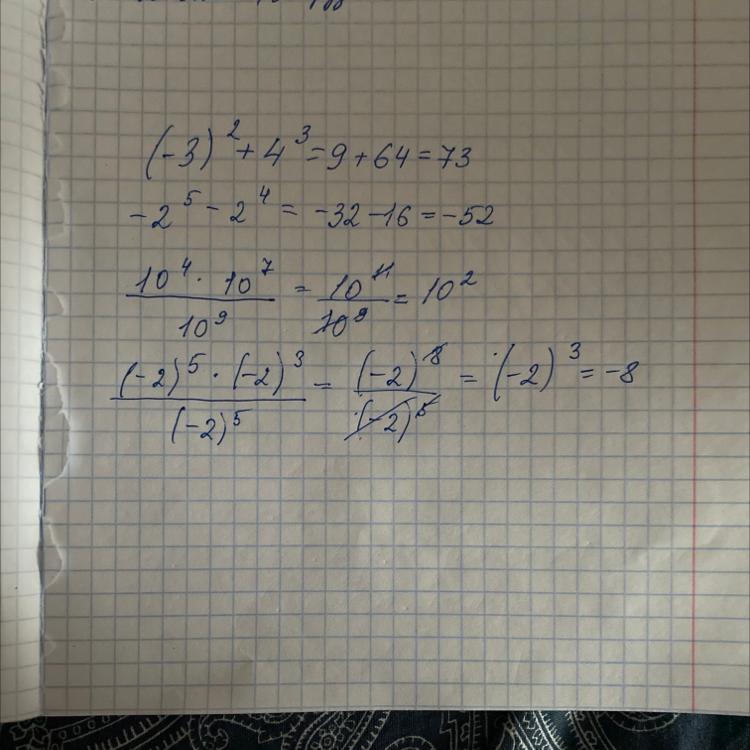 (-3)² + 4³ = 9 + 64 = 73
-2⁵ - 2⁴ = -32 - 16 = -52
(10⁴ · 10⁷)/10⁹ = 10¹¹/10⁹ = 10²
((-2)⁵ · (-2)³)/(-2)⁵ = (-2)⁸/(-2)⁵ = (-2)³ = -8